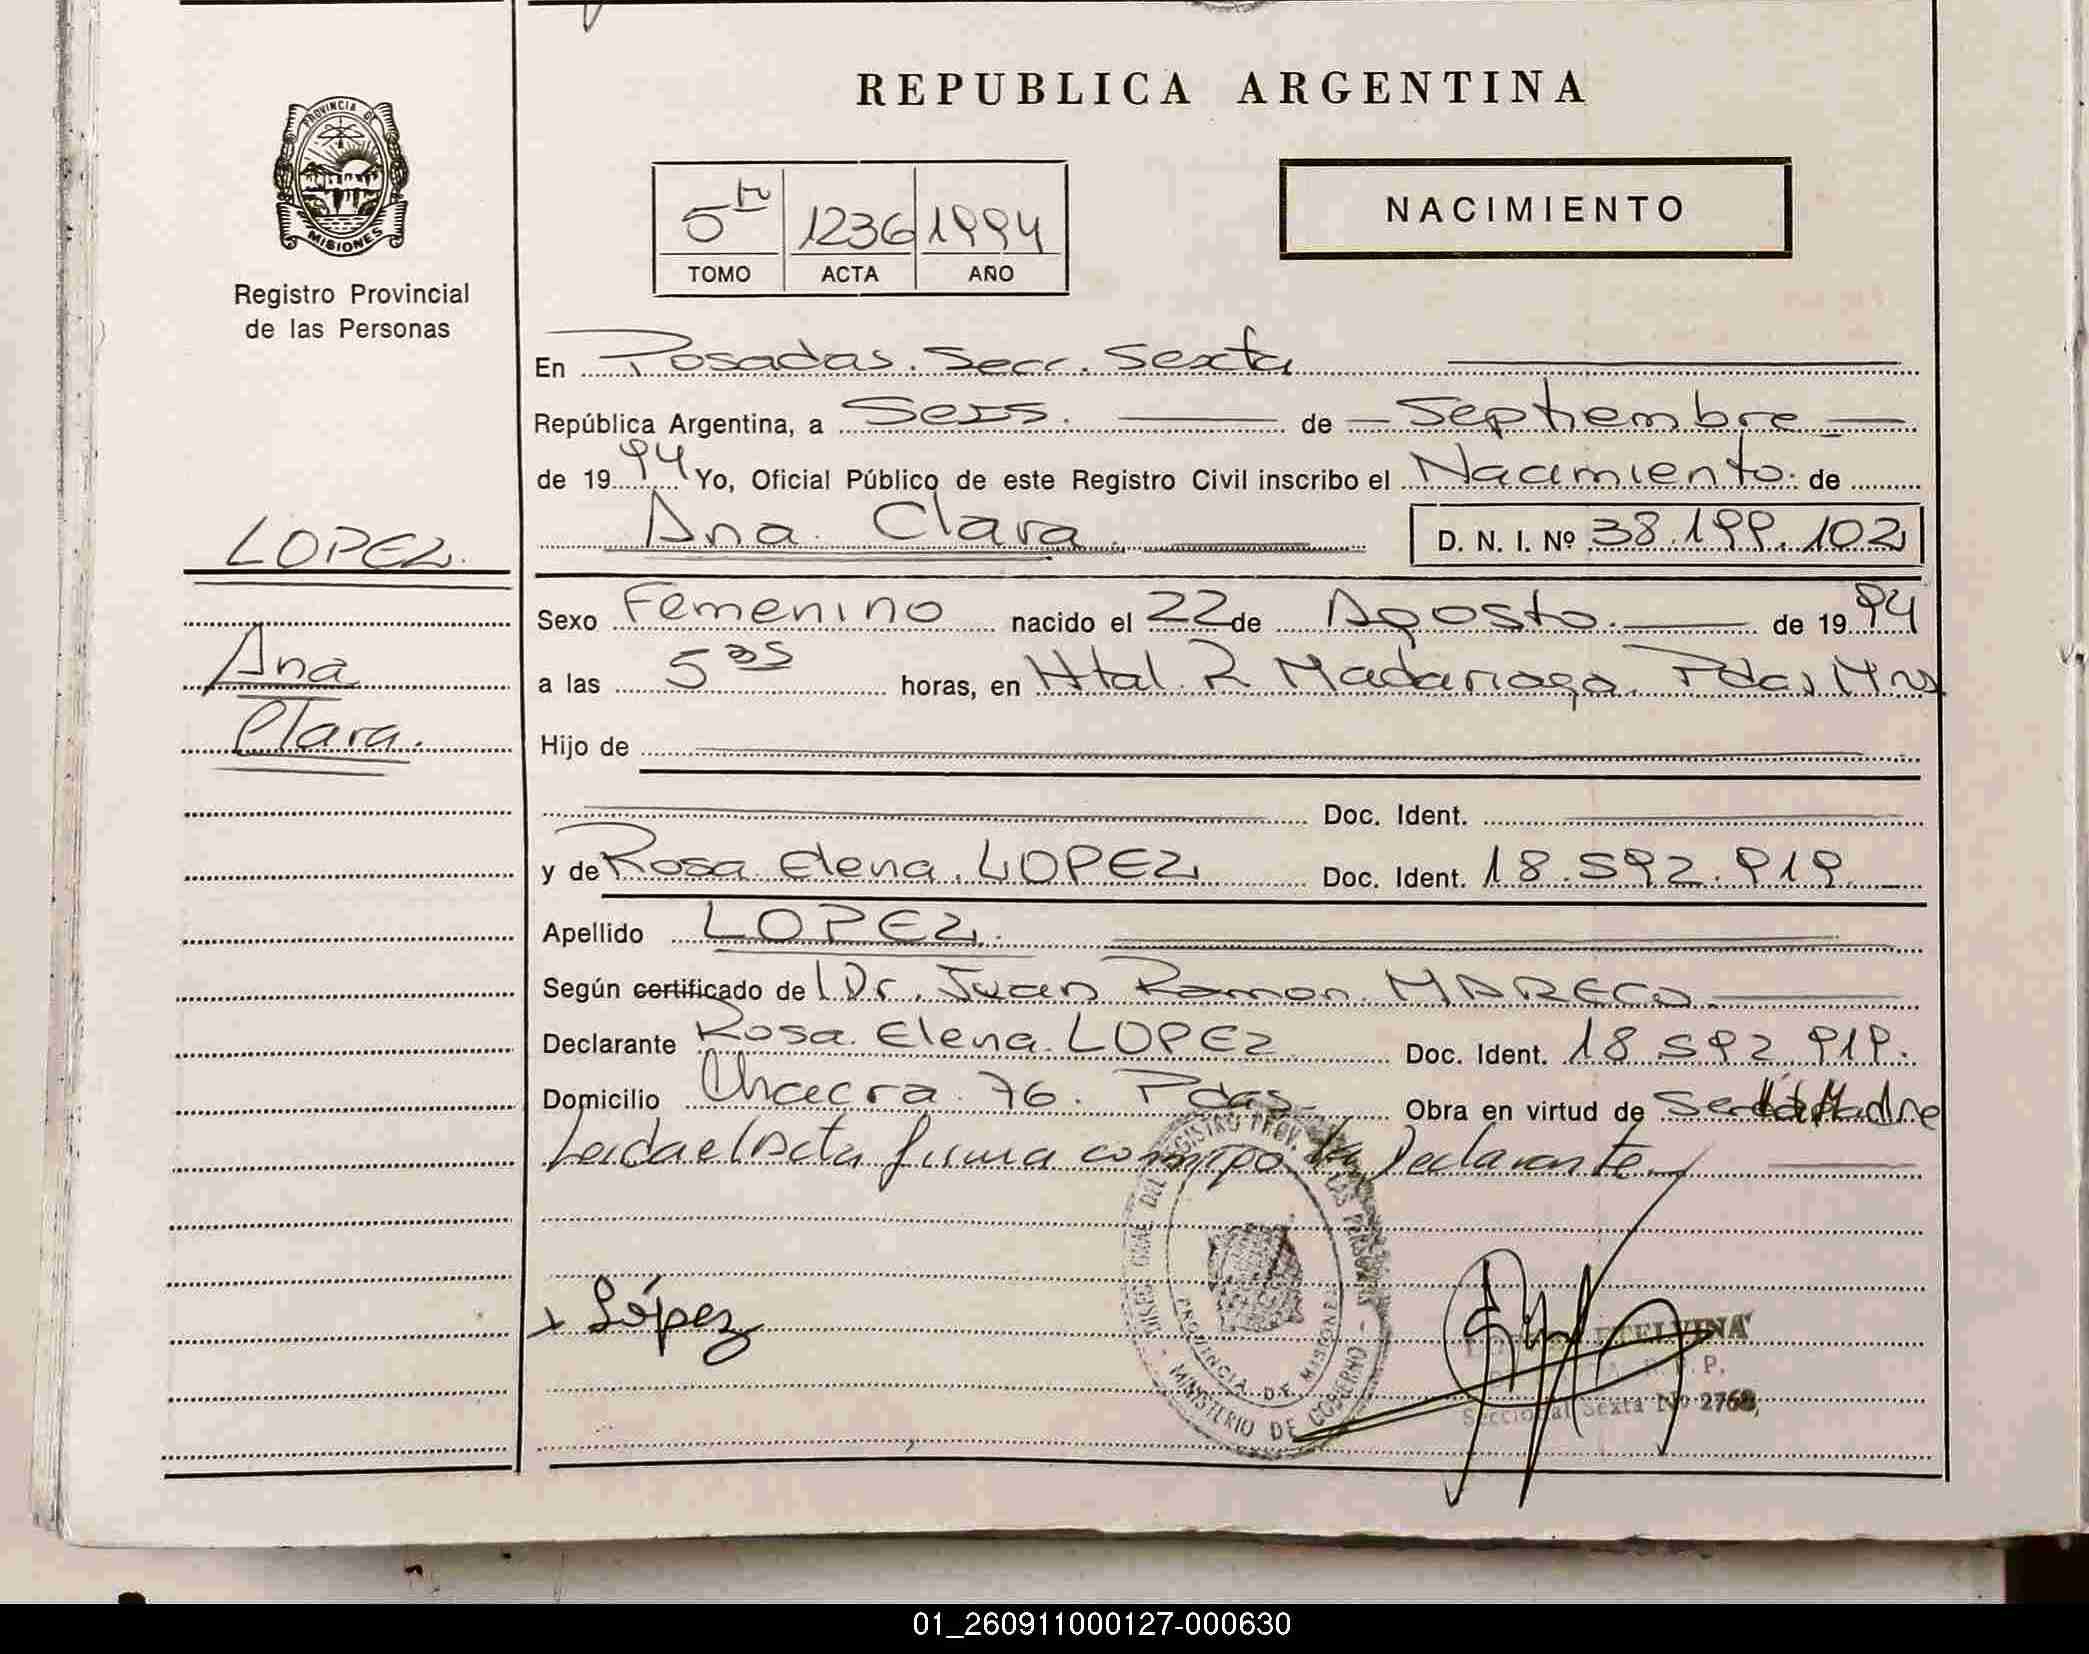 REPUBLICA ARGENTINA
PROVINCIA DE
MISIONES
Registro Provincial
de las Personas
5to 1236 1994
TOMO ACTA AÑO
NACIMIENTO
En Posadas. Secc. Sexta
República Argentina, a Seis. de Septiembre
de 1994 Yo, Oficial Público de este Registro Civil inscribo el Nacimiento de
Ana Clara D. N. I. Nº 38.199.102
LOPEZ.
Ana
Clara.
Sexo Femenino nacido el 22 de Agosto. de 1994
a las 5 35 horas, en Htal. R Madariaga. Pdas Mnes
Hijo de
Doc. Ident.
y de Rosa Elena. LOPEZ Doc. Ident. 18.592.919
Apellido LOPEZ.
Según certificado de Dr. Juan Ramon. MARECO.
Declarante Rosa. Elena. LOPEZ Doc. Ident. 18 592 919.
Domicilio Chacra 76. Pdas. Obra en virtud de Ser la Madre
Leida el Acta firma conmigo la Declarante
López
DEL REGISTRO PROV. LAS PERSONAS
PROVINCIA DE MISIONES
MINISTERIO DE GOBIERNO
ETELVINA
Seccional Sexta Nº 2768
01_260911000127-000630